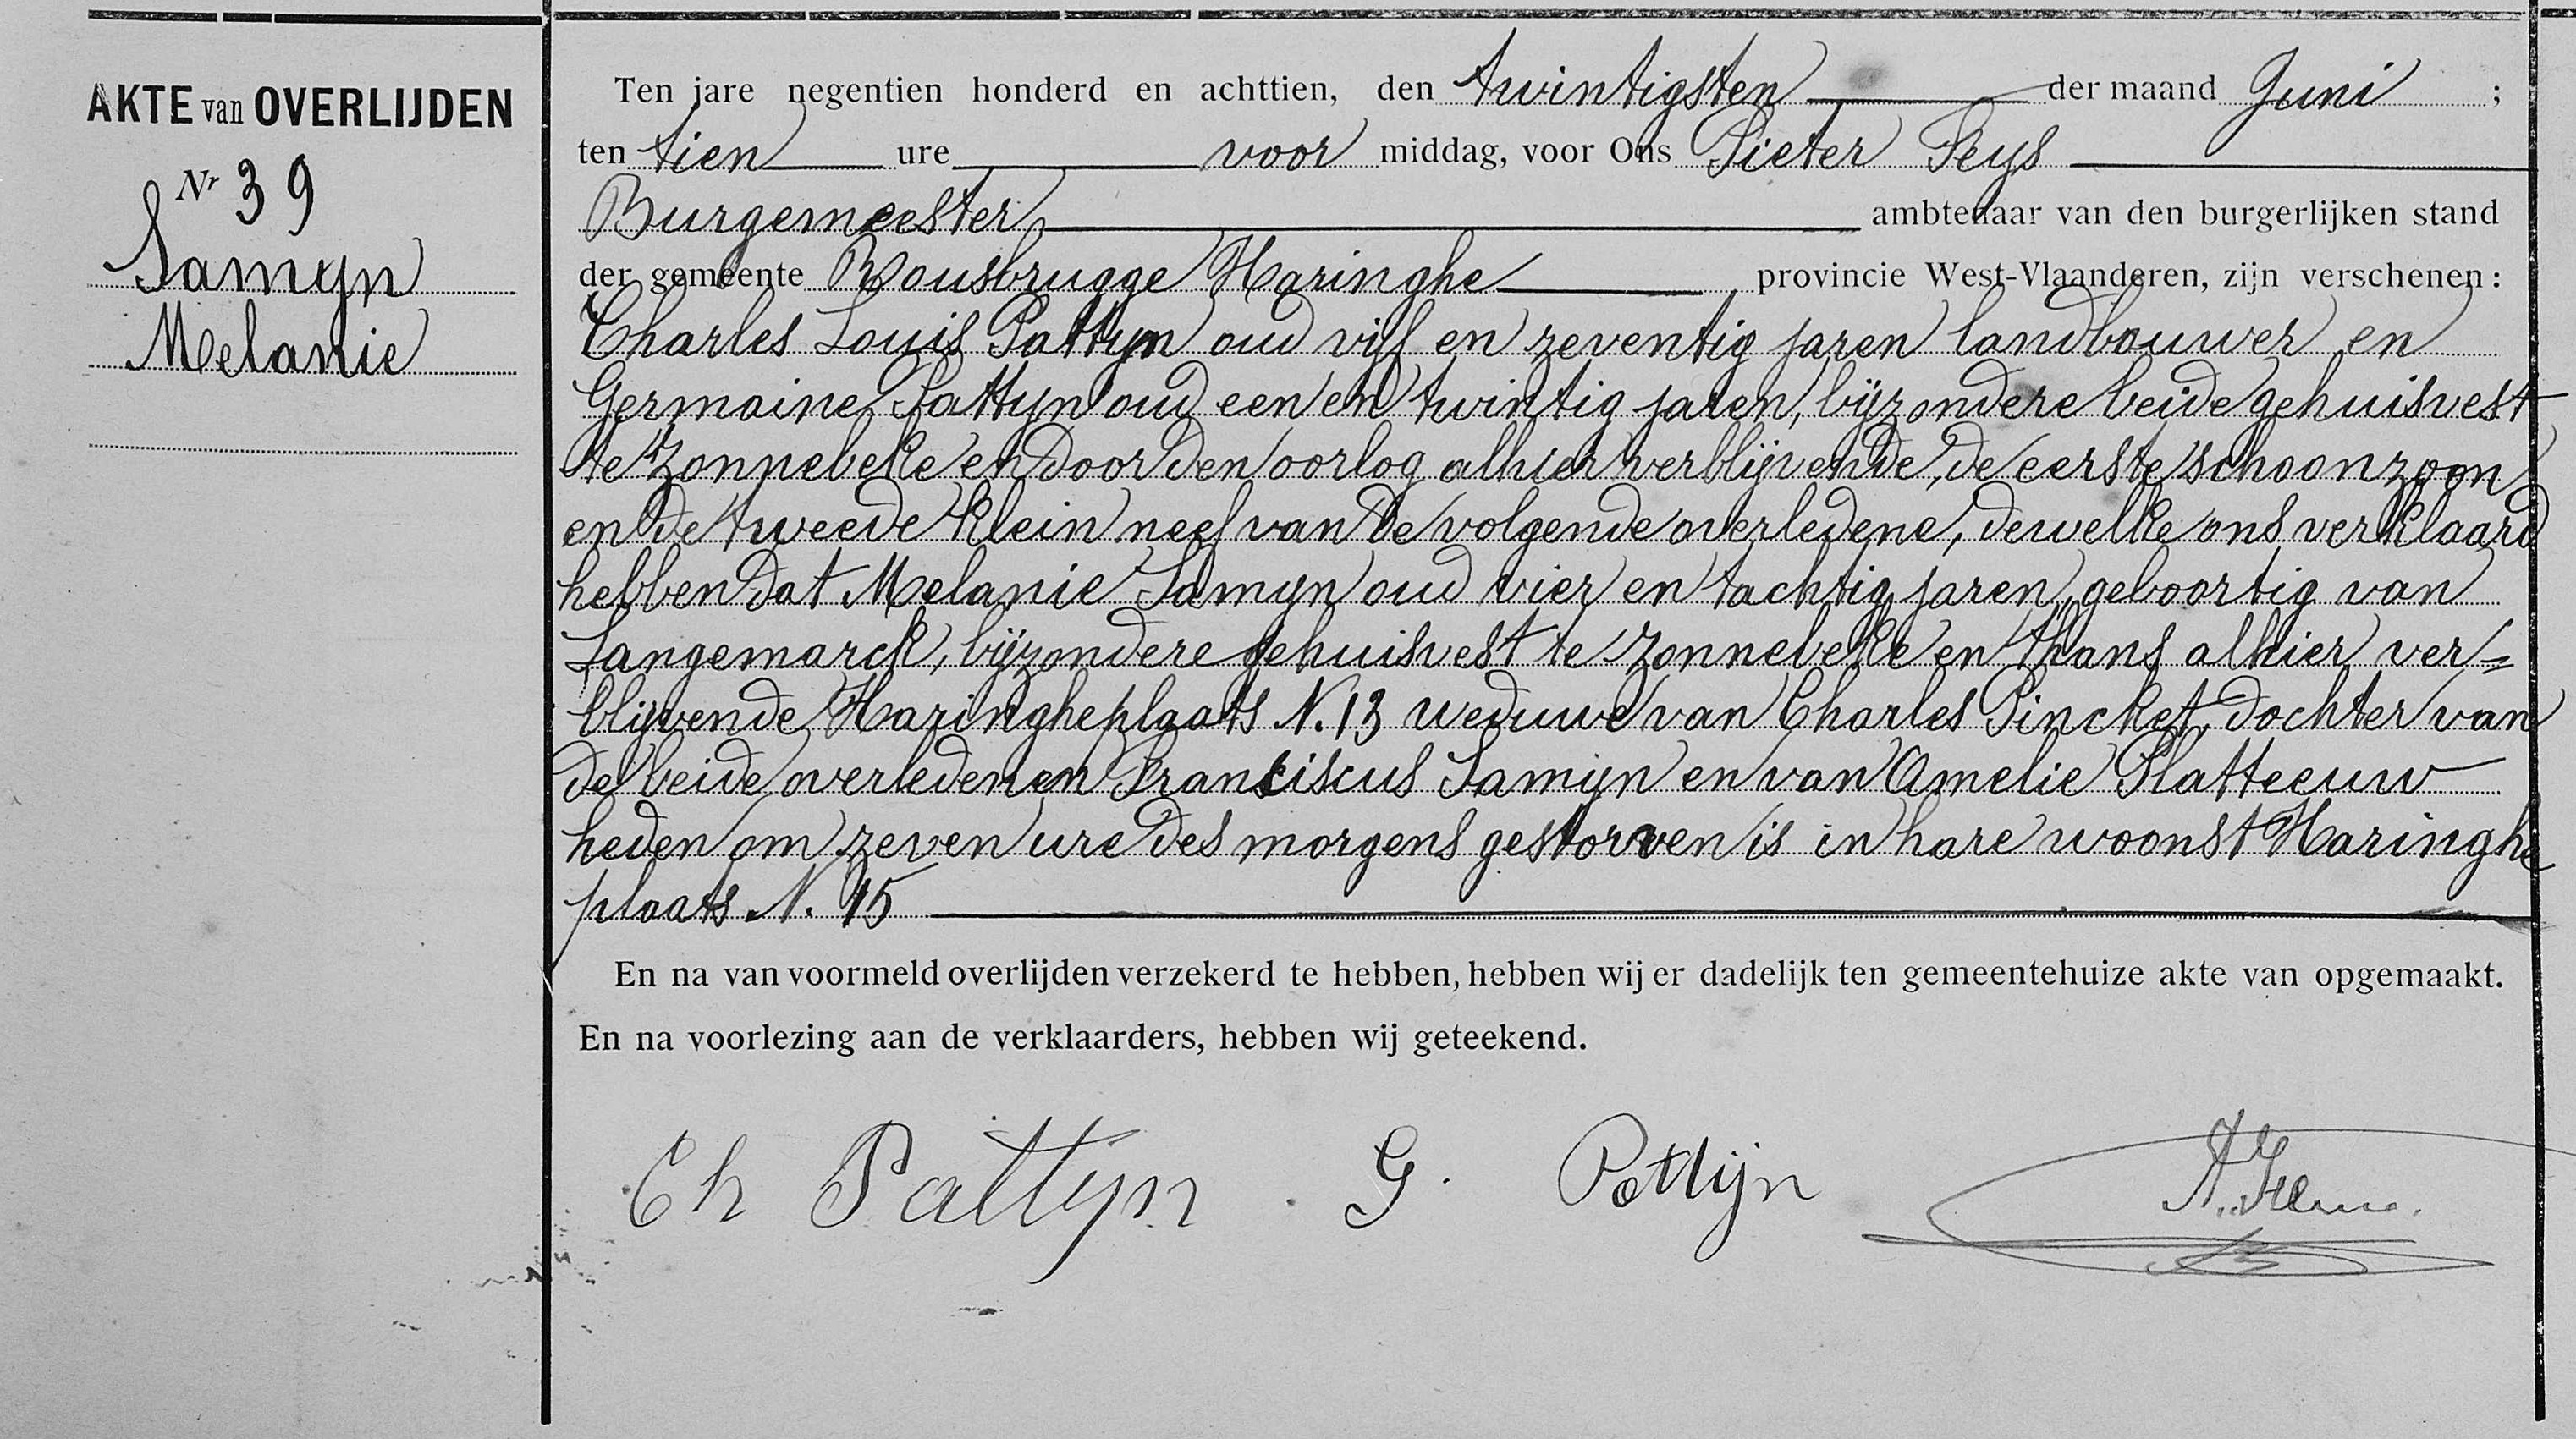 AKTE van OVERLIJDEN
Nr 39
Samyn
Melanie
Ten jare negentien honderd en achttien, den twintigsten der maand Juni ;
ten tien ure voor middag, voor Ons Pieter Feys
Burgemeester ambtenaar van den burgerlijken stand
der gemeente Rousbrugge Haringhe provincie West-Vlaanderen, zijn verschenen:
Charles Louis Pattyn oud vijf en zeventig jaren landbouwer en
Germaine Pattyn oud een en twintig jaren, bijzondere beide gehuisvest
te Zonnebeke en door den oorlog alhier verblijvende, de eerste schoonzoon
en de tweede klein neef van de volgende overledene, dewelke ons verklaard
hebben dat Melanie Samyn oud vier en tachtig jaren, geboortig van
Langemarck, bijzondere gehuisvest te Zonnebeke en thans alhier ver-
blijvende Haringheplaats N. 13 weduwe van Charles Pincket, dochter van
de beide overledenen Franciscus Samyn en van Amelie Platteeuw
heden om zeven ure des morgens gestorven is in hare woonst Haringhe
plaats N. 15
En na van voormeld overlijden verzekerd te hebben, hebben wij er dadelijk ten gemeentehuize akte van opgemaakt.
En na voorlezing aan de verklaarders, hebben wij geteekend.
Ch Pattyn G. Pattijn